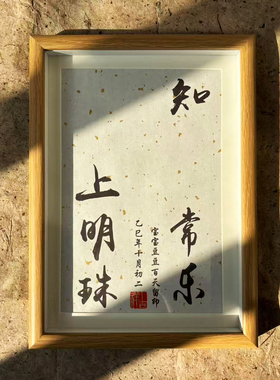 知常乐
宝宝豆豆百天留印
乙巳年十月初二
上明珠